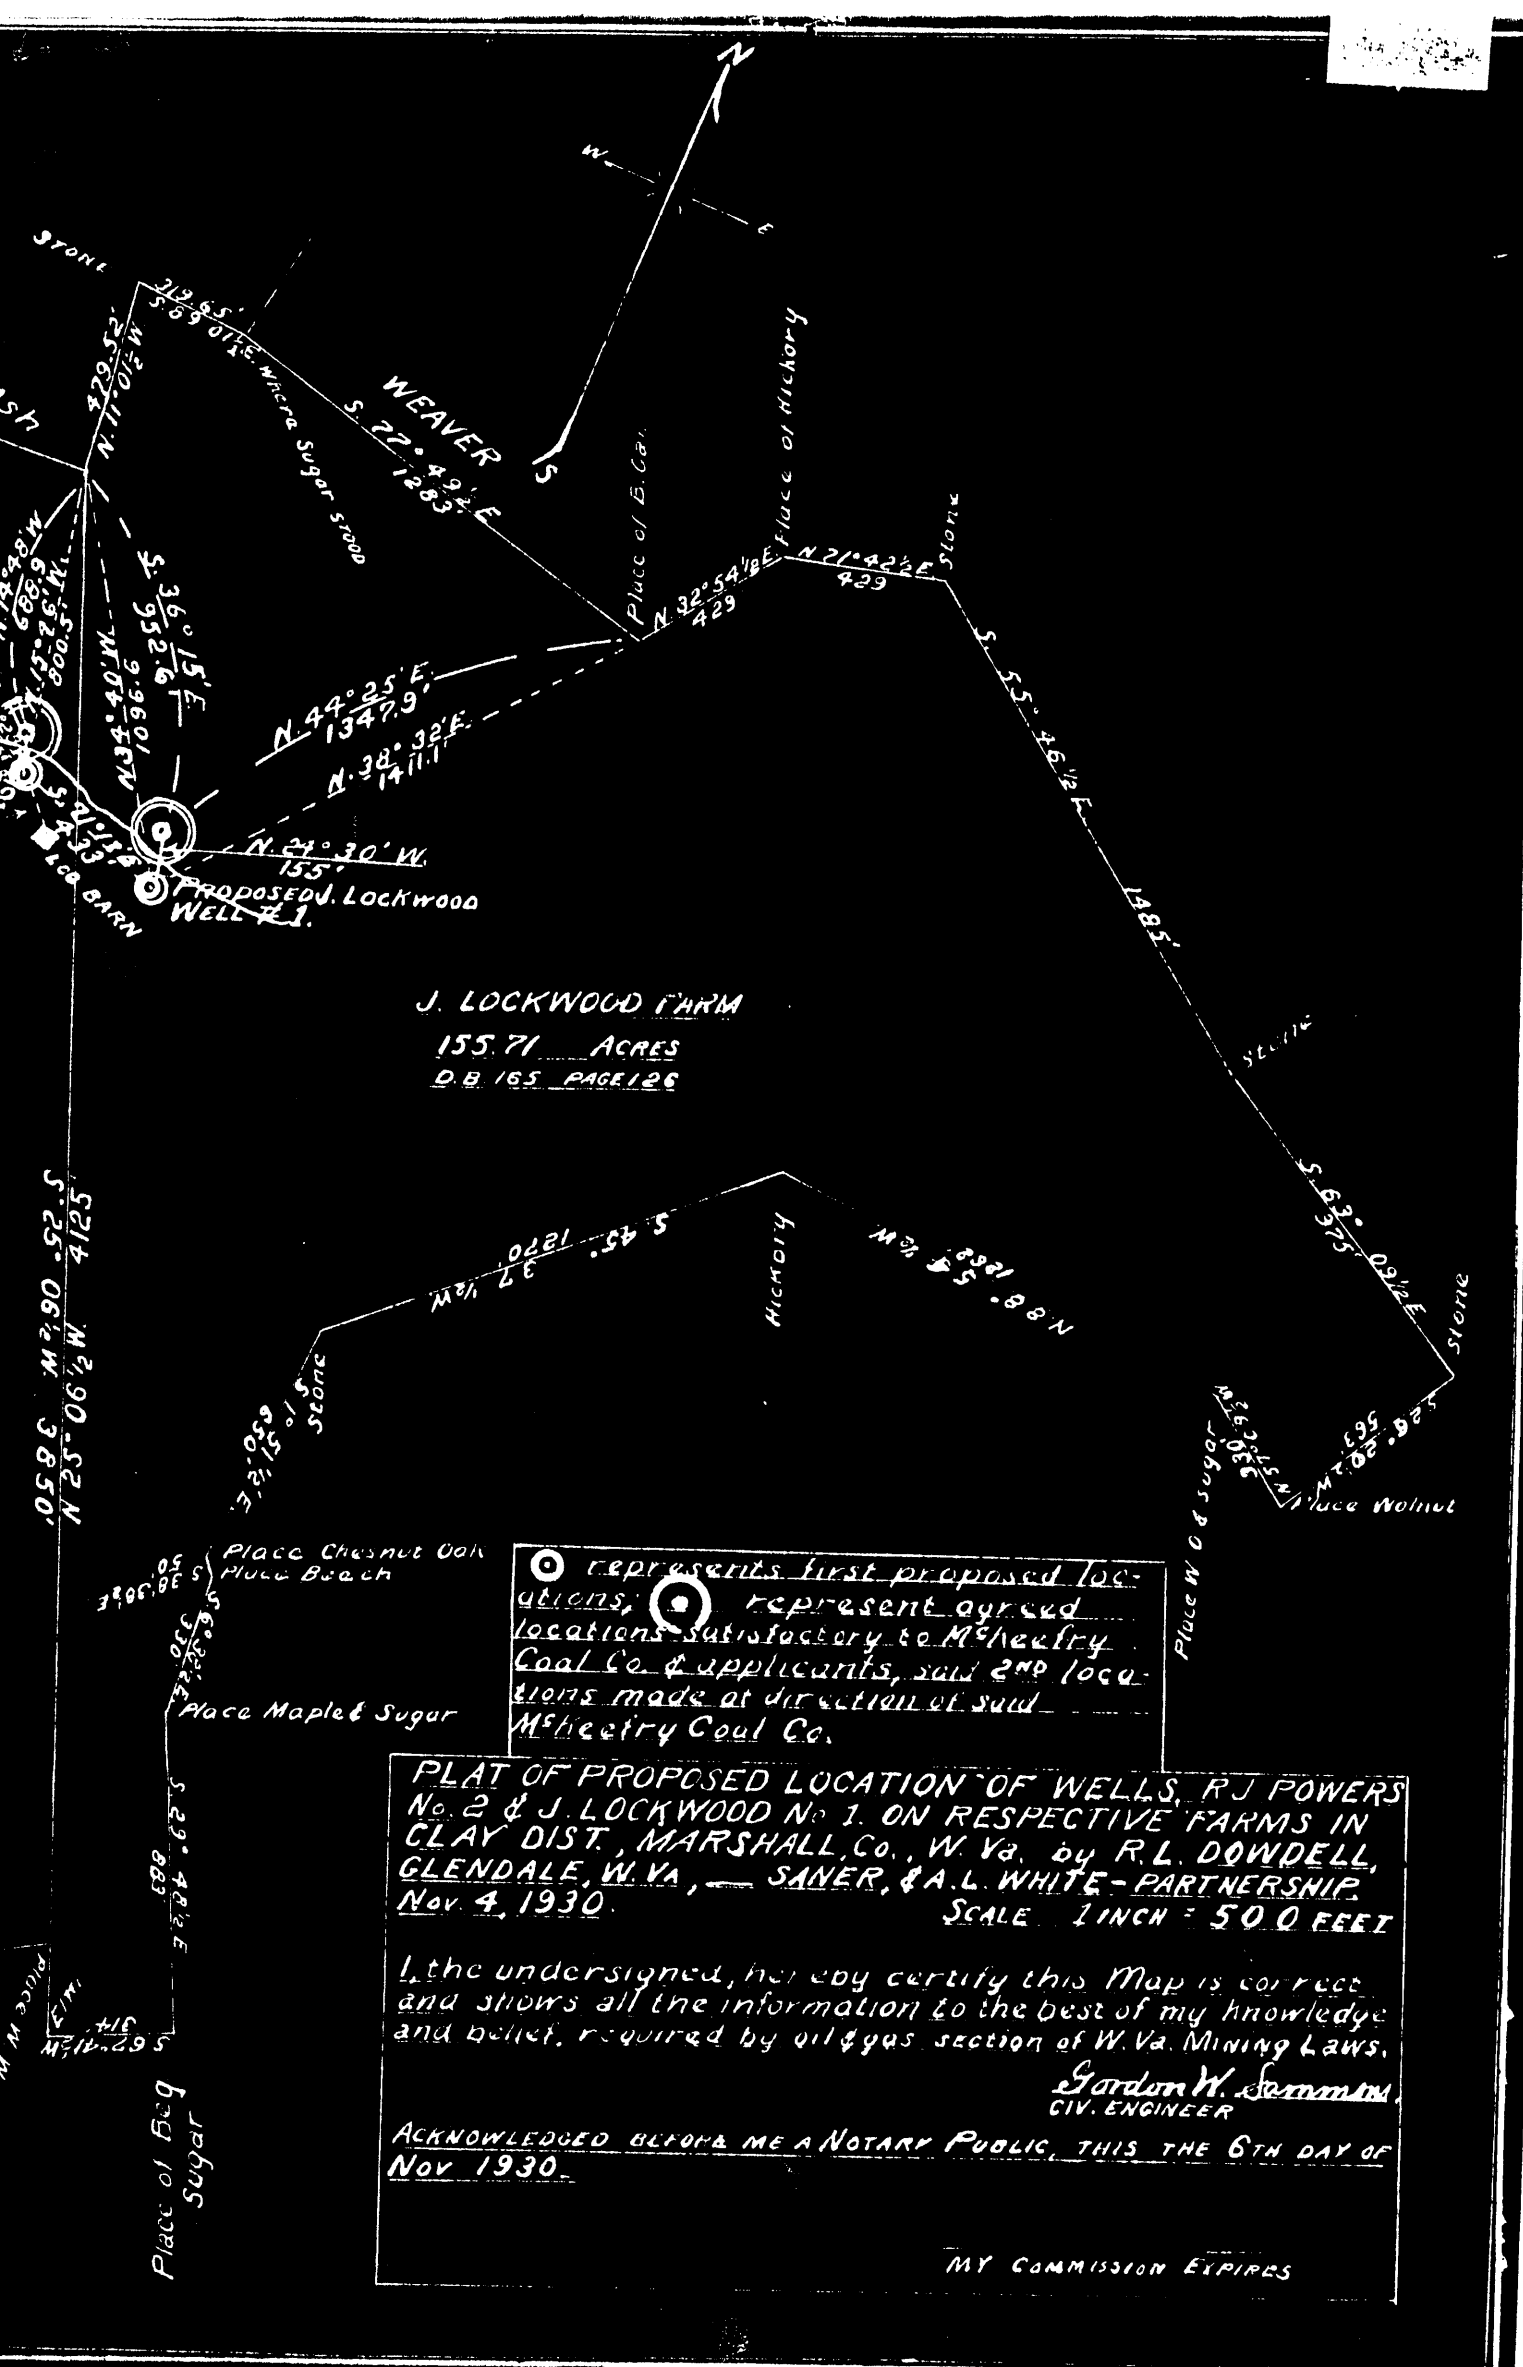 N
W
E
S
STONE
319.65'
S.69°01½'E.
Where Sugar STOOD
429.52'
N.11°01½'W
WEAVER
S. 77° 49½ E
1283'
Place of B. Ca.
Place of Hickory
N. 32° 54⅛ E.
429
N 21° 42½ E.
429
Stone
S. 55° 46½ E.
1485'
Stone
S. 63° 09½ E
375'
Stone
563
Place Walnut
330
Place W O & Sugar
688.9'
N.15°26'W.
800.5'
N34°40'W.
1096.6
S. 36° 15' E
952.6'
N. 44° 25' E.
1347.9'
N. 38° 32' E.
1411.1'
N. 24° 30' W.
155'
433'
LCO BARN
PROPOSED J. LOCKWOOD
WELL #1.
J. LOCKWOOD FARM
155.71 ACRES
D.B. 165 PAGE 126
S. 25° 06½ W. 3850'
N 25° 06½ W. 4125'
S. 45° 37 ½ W
1270'
Hickory
N. 88° 54 ½ W
Stone
S 1° 51 ½' E.
650'
Place Chesnut Oak
Place Beach
S 38° 38½ E
50'
330
Place Maple & Sugar
S 29° 48½ E
883
314
S 62° 41½ W
Place of Beg
Sugar
represents first proposed loc-
ations, represent agreed
locations satisfactory to
Coal Co. & applicants, said 2ND loca-
tions made at direction of said
Coal Co.
PLAT OF PROPOSED LOCATION OF WELLS, RJ POWERS
No. 2 & J. LOCKWOOD No 1. ON RESPECTIVE FARMS IN
CLAY DIST., MARSHALL, Co., W. Va. by R.L. DOWDELL,
GLENDALE, W. VA, — SANER, & A.L. WHITE - PARTNERSHIP.
Nov. 4, 1930. SCALE 1 INCH = 500 FEET
I, the undersigned, hereby certify this Map is correct
and shows all the information to the best of my knowledge
and belief, required by oil & gas section of W. Va. Mining Laws.
Gordon W. Sammons.
CIV. ENGINEER
ACKNOWLEDGED BEFORE ME A NOTARY PUBLIC, THIS THE 6TH DAY OF
Nov 1930.
MY COMMISSION EXPIRES